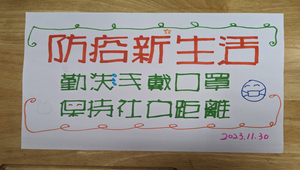 防疫新生活
勤洗手戴口罩
保持社交距離
2023.11.30